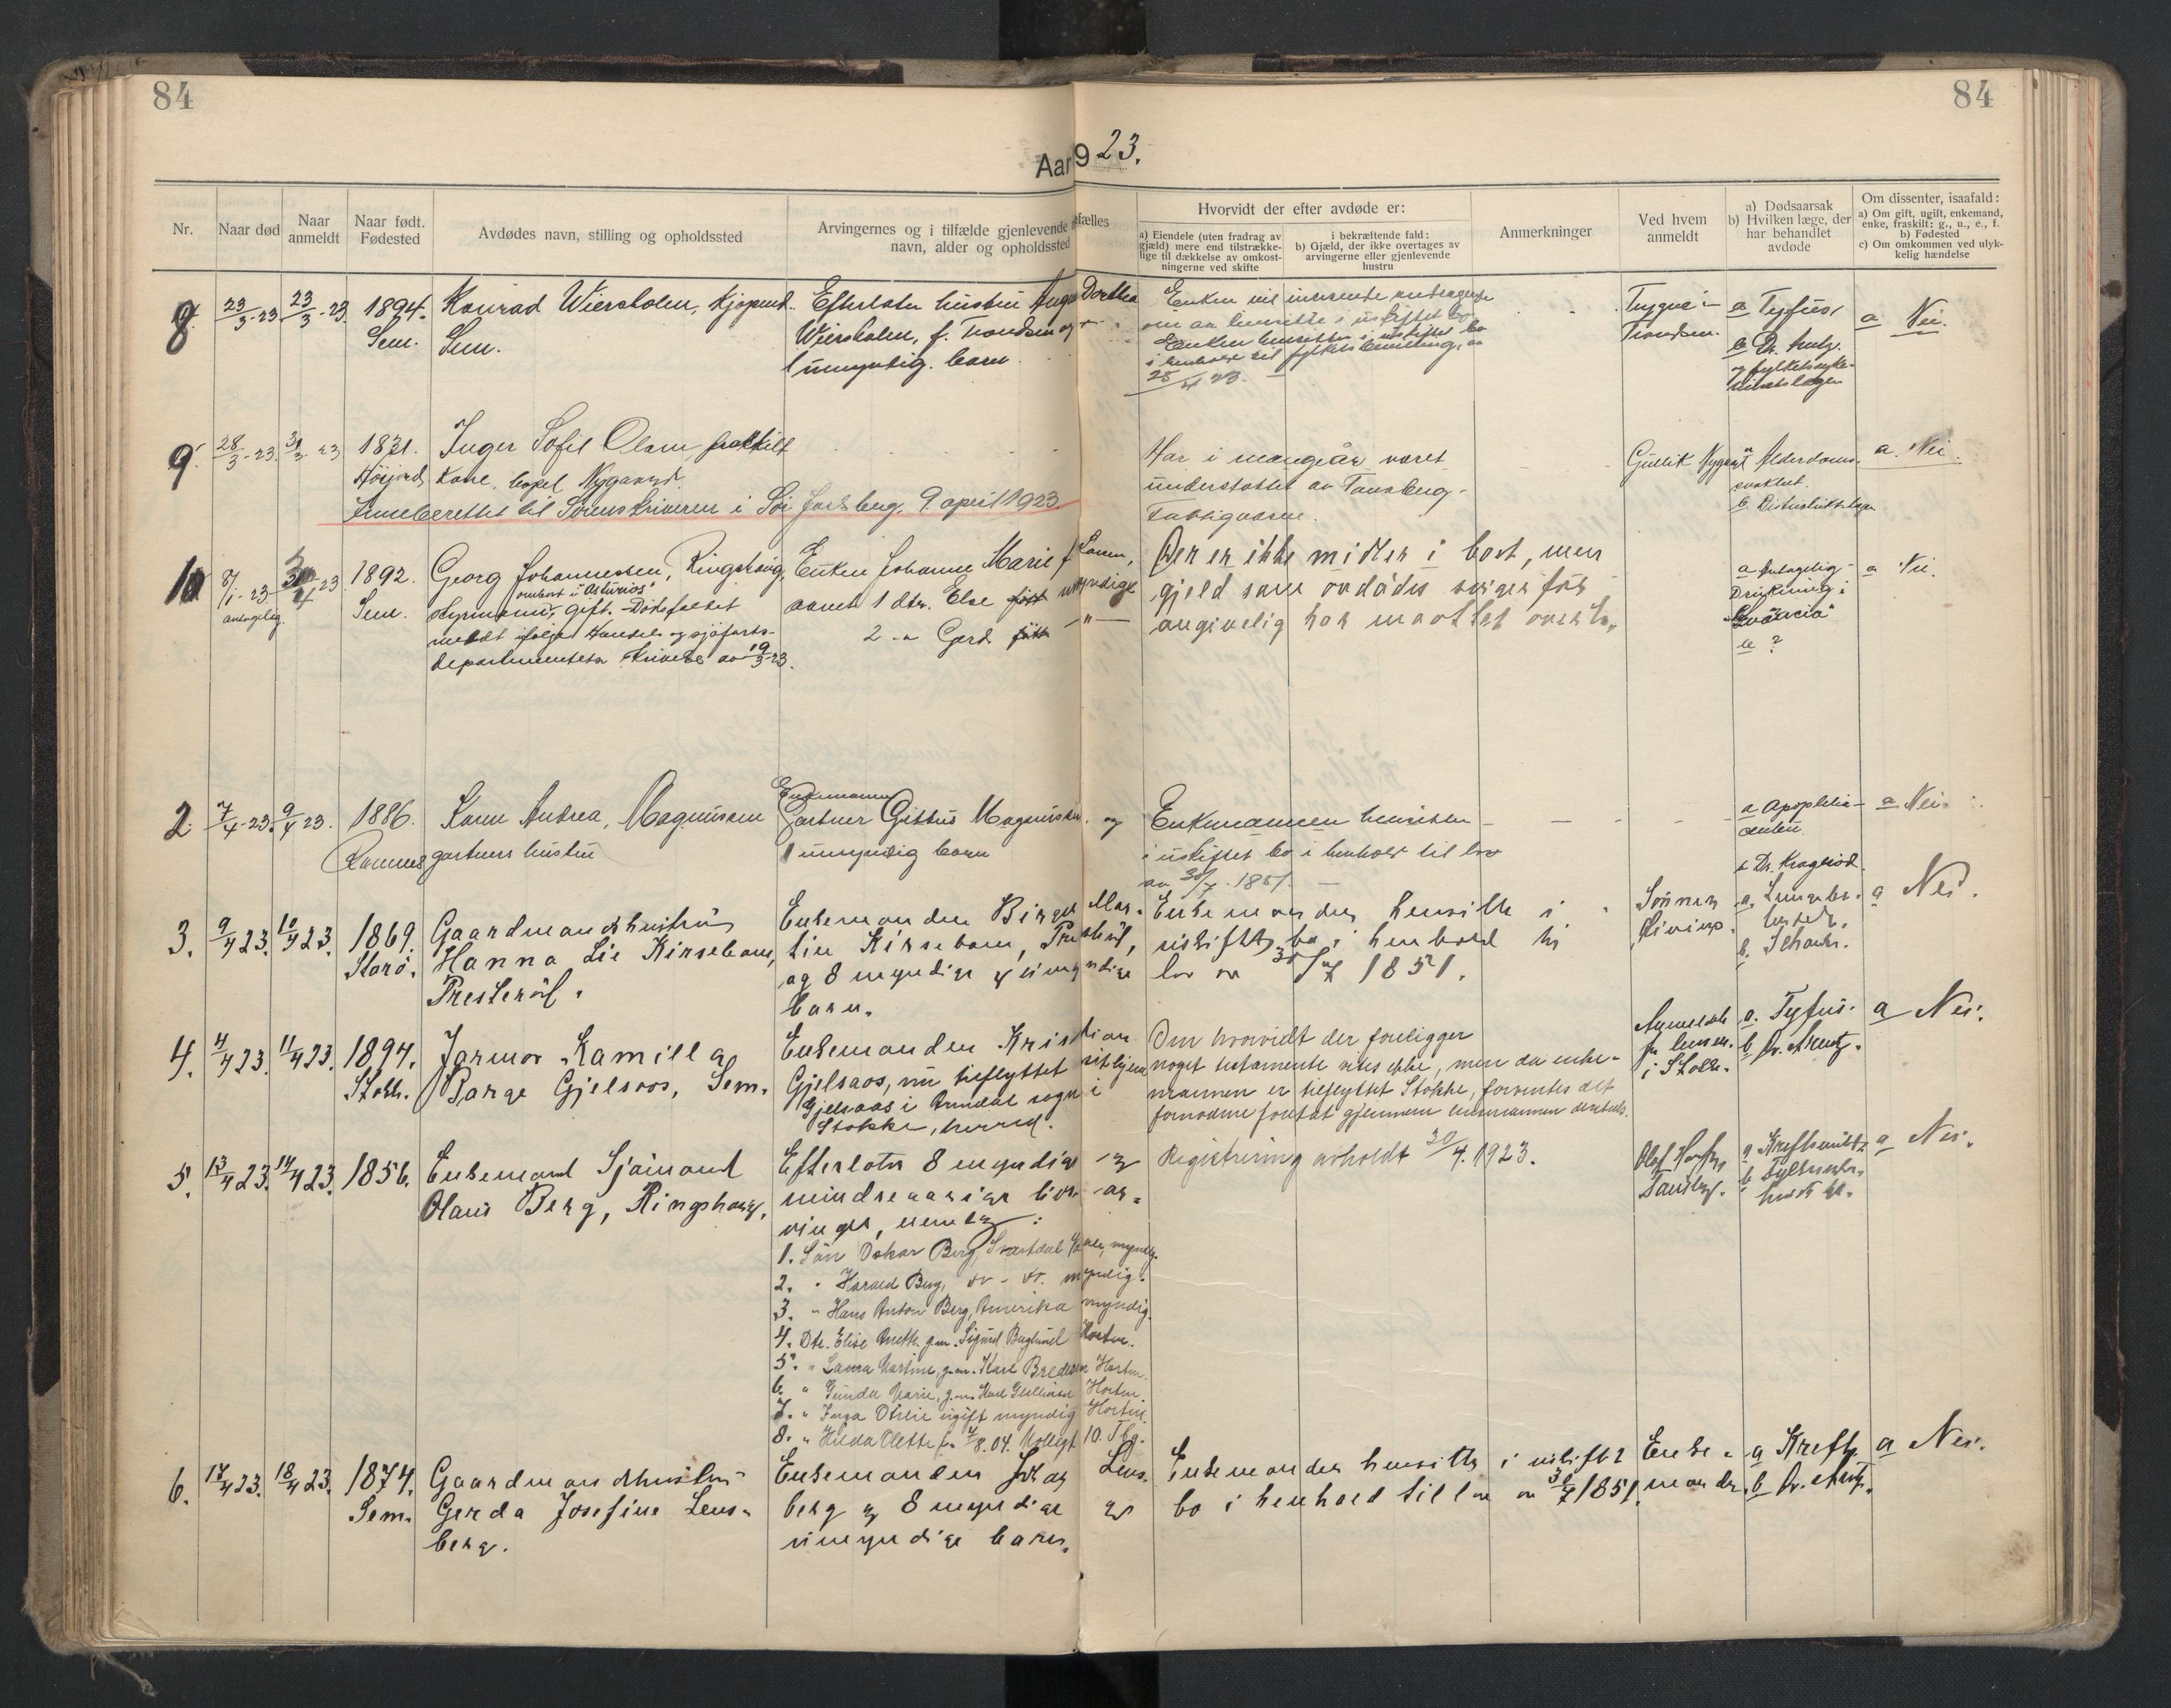 84
84
Aar 1923.
Nr.
Naar død
Naar anmeldt
Naar født. Fødested
Avdødes navn, stilling og opholdssted
Arvingernes og i tilfælde gjenlevende fælles
navn, alder og opholdssted
Hvorvidt der efter avdøde er:
a) Eiendele (uten fradrag av gjæld) mere end tilstrækkelige til dækkelse av omkostningerne ved skifte
i bekræftende fald:
b) Gjæld, der ikke overtages av arvingerne eller gjenlevende hustru
Anmerkninger
Ved hvem anmeldt
a) Dødsaarsak
b) Hvilken læge, der har behandlet avdøde
Om dissenter, isaafald:
a) Om gift, ugift, enkemand, enke, fraskilt: g., u., e., f.
b) Fødested
c) Om omkommen ved ulykkelig hændelse
8. 23/3-23 23/3-23 1894. Sem.
Konrad Wiersholm, kjøpmd.
Sem.
Efterlater hustru Dorthea
Wiersholm, f. Trondsen og
1 umyndig. barn.
Enken vil
Enken hensitter i uskiftet bo
i henhold til fylkets bevilling av
25/4 23.
Trygve
Trondsen.
a Tyfus
b Dr. Arentz.
a Nei.
9. 28/3-23. 23 1831.
Inger Sofie Olsen, fraskilt
Kone, bopel Nygaard.
Innberettet til Sorenskriveren i Sør Jarlsberg, 9 april 1923
Har i mange år været
understøttet av Tønsberg
Fattigvæsen.
Gullik Nygaard
a Alderdoms-
svakhet.
b Distriktslægen
a. Nei.
10 8/1-23 antagelig. 23 1892. Sem.
Georg Johannessen, Ringshaug,
ombord i "Asturios"
styrmann, gift. Dødsfaldet
meldt ifølge Handels og sjøfarts-
departementets skrivelse av 19/3-23.
Enken Johanne Marie f. Larsen,
samt 1 dtr. Else født umyndige
2 -"- Gerd født -"-
Der er ikke midler i boet, men
gjeld som avdødes svigerfar
angivelig har maattet overta.
a Antagelig
Drukning i
b ?
a Nei.
2. 7/4-23. 9/4 23. 1886. Ramnes
Karen Andrea, Magnussen
gartners hustru
Enkemann
Gartner Gittus Magnussen, og
1 umyndig barn
Enkemannen hensitter
i uskiftet bo i henhold til lov
av 30/7. 1851.
a Apopleksia
b Dr. Kragerød.
a Nei.
3. 9/4 23. 10/4 23. 1869.
Gaardmandshustru
Hanna Lie Kirsebom,
Presterød.
Enkemanden Birger Mar-
tin Kirsebom, Presterød,
og 8 myndige og umyndige
barn.
Enkemanden hensitter i
uskiftet bo i henhold til
lov av 30/7 1851.
Sønnen
a. Lungebe-
b.
a Nei.
4. 4/4 23. 11/4 23. 1894. Stokke.
Jarmor Kamilla
Borge Gjelsaas, Sem.
Enkemanden Kristian
Gjelsaas, nu tilflyttet sit hjem
Gjelsaas i Arendal sogn i
Stokke, herred.
Om hvorvidt der foreligger
noget testamente vites ikke, men da enke-
mannen er tilflyttet Stokke, forventes det
fornødne foretat gjennem lensmannen dersteds.
Anmeldt
fra lensm.
i Stokke.
a. Tyfus.
b Dr. Arentz.
a Nei.
5. 13/4 23. 14/4 23. 1856.
Enkemand Sjømand
Olaus Berg, Ringshaug.
Efterlater 8 myndige og
mindreaarige livsar-
vinger, nemlig:
1. Søn Oskar Berg, Svartdal myndig.
2. " Harald Berg, do - do. myndig.
3. " Hans Anton Berg, Amerika myndig.
4. Dtr. Elise Anette g.m. Sigurd Berglund Horten.
5. " Laura Martine, g.m. Karl Bredesen Horten.
6. " Gunda Marie, g.m. Karl Horten.
7. " Inga Otilie ugift myndig Horten.
8. " Hilda Olette f. 7/8.04. Møllegt. 10. Tbg.
Registrering avholdt 20/4. 1923.
Olaf
Tønsberg.
a Kreft
b Fylkessyke-
huset
a Nei.
6. 17/4 23. 18/4 23. 1874. Sem.
Gaardmandshustru
Gerda Josefine Lens-
berg.
Enkemanden Lens-
berg og 8 myndige og
umyndige barn.
Enkemanden hensitter i uskiftet
bo i henhold til lov av 30/7 1851.
Enke-
manden.
a Kreft.
b Dr. Arentz.
a Nei.